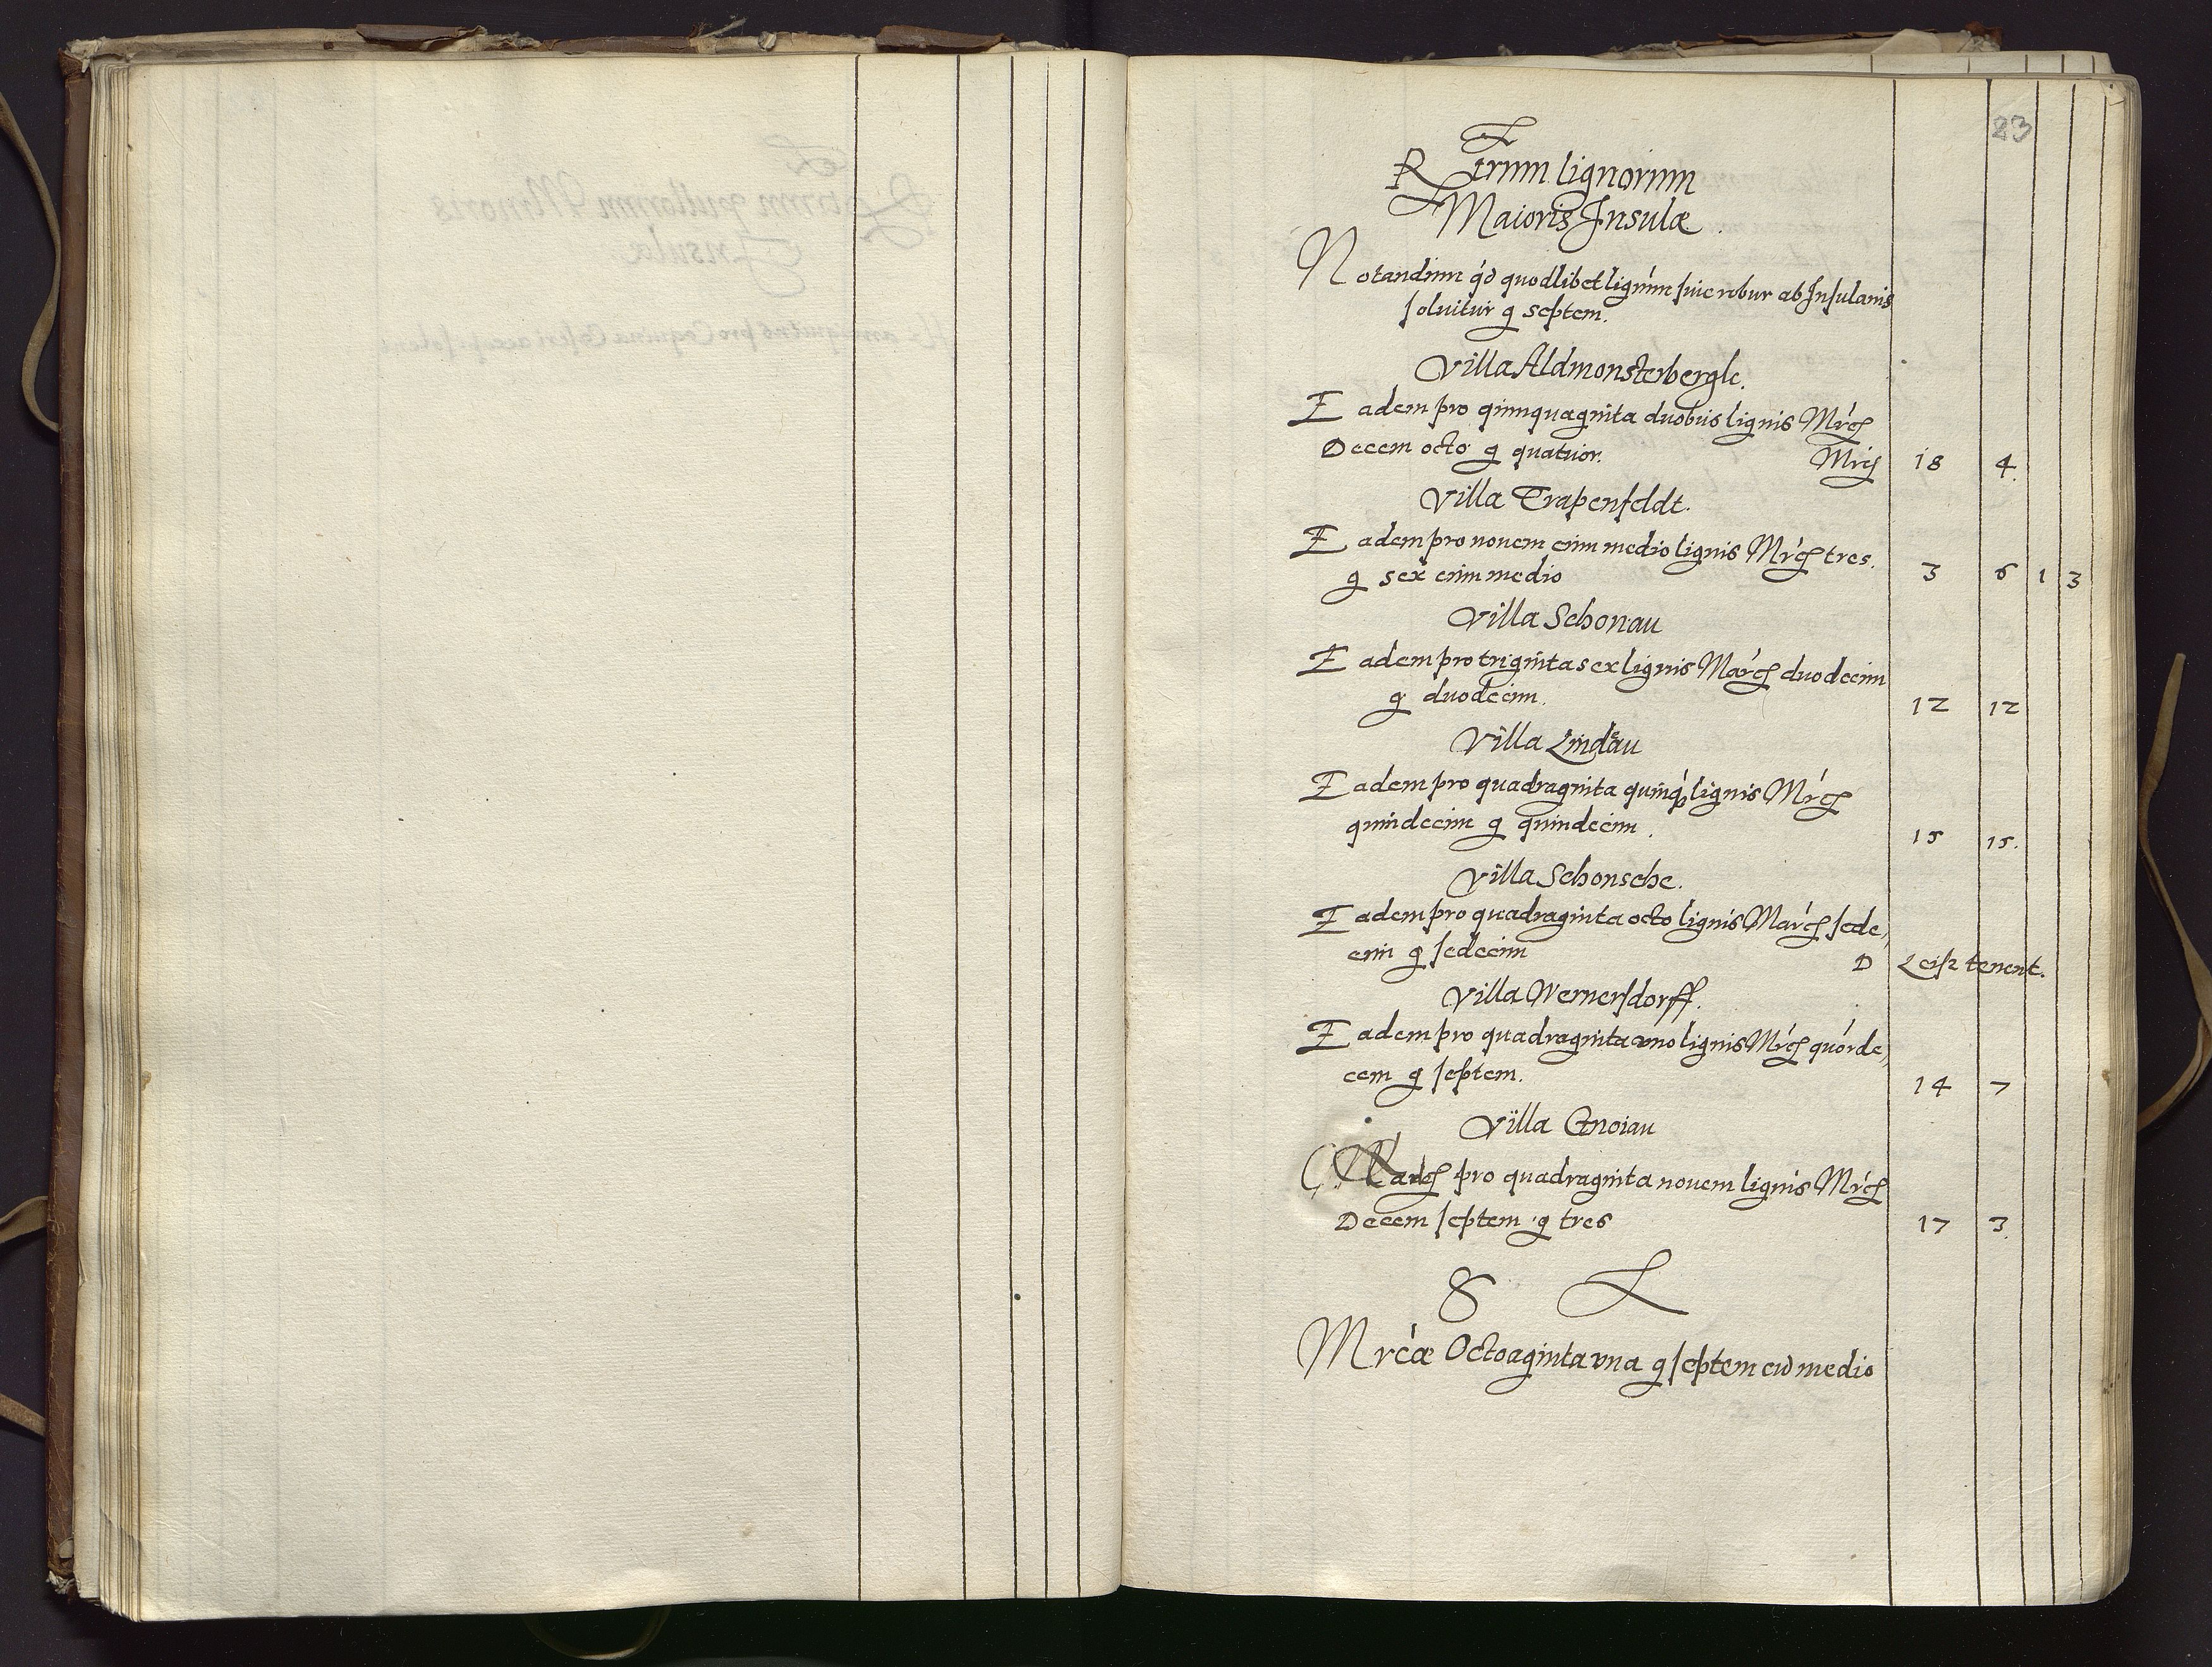 23
Rerum lignorum
Maioris Insulæ.
Notandum qd quodlibet lignum siue robur ab Insulanis
soluitur g septem.
Villa Aldmonsterbergk.
Eadem pro quinquaginta duobus lignis Mrc
Decem octo g quatuor. Mrc 18 4.
Villa Trapenfeldt.
Eadem pro nouem cum medio lignis Mrc tres.
g sex cum medio 3 6 1 3
Villa Schonau
Eadem pro triginta sex lignis Marc duodecim
g duodecim. 12 12
Villa Lindau
Eadem pro quadraginta quinq lignis Mrc
quindecim g quindecim. 15 15.
Villa Schonsche.
Eadem pro quadraginta octo lignis Marc sede,
cim g sedecim D Leisz tenent.
Villa Wernersdorff.
Eadem pro quadraginta vno lignis Mrc quorde,
cem g septem. 14 7
Villa Gnoiau
pro quadraginta nouem lignis Mrc
Decem septem g tres 17 3.
S L
Mrcæ Octoaginta vna g septem cu medio